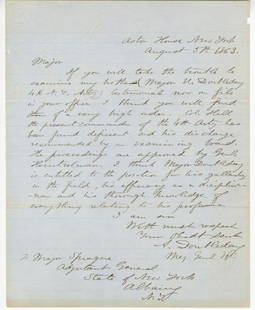 Astor House New York
August 5th 1863.
Major
If you will take the trouble to
examine my brother Major U. Doubleday
4th N.Y. Arty; testimonial now on file
in your office I think you will find
them of a very high order. Col. Hall
the present commander of the 4th Arty has
been found deficient and his discharge
recommended by an examining board.
The proceedings are approved by Genl
Heintzelman. I think Major Doubleday
is entitled to the position for his gallantry
in the field, his efficiency as a discipli-
narian and his thorough knowledge of
everything relating to his profession
I am sir
With much respect
Your Obedt Servt
A. Doubleday
Maj Genl Vols.
To Major Sprague
Adjutant General
State of New York
Albany
N.Y.